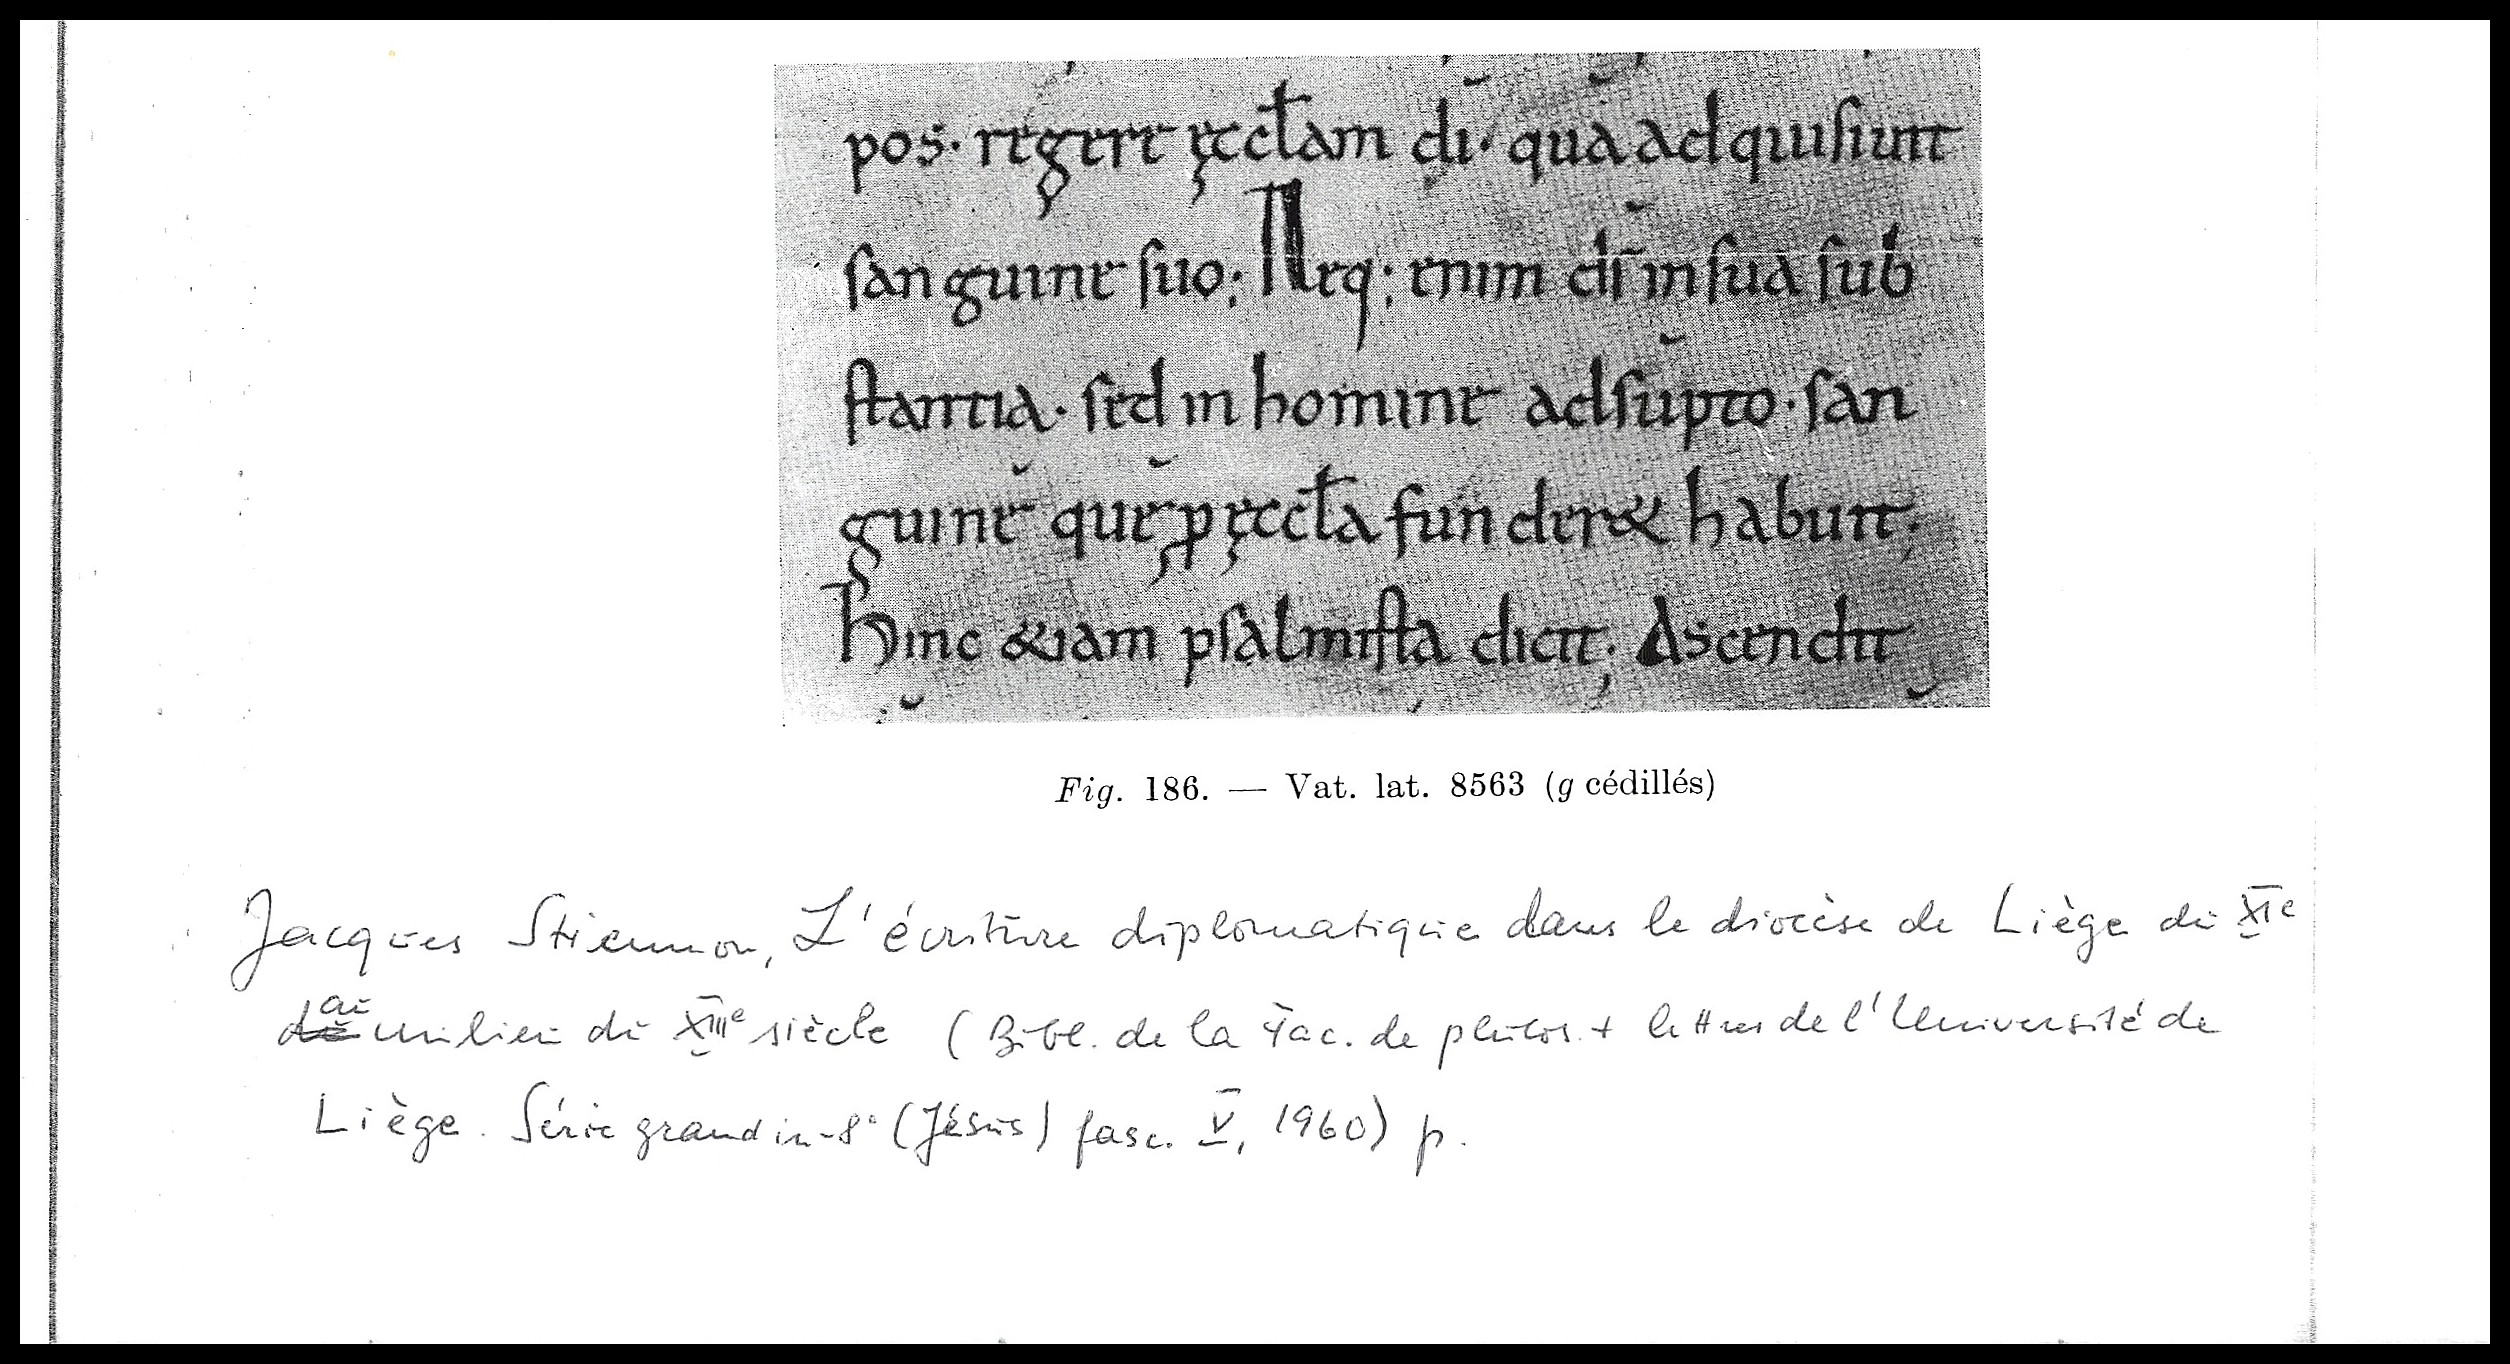 pos· regere ęccl̄am di· qua adquisiuit
sanguine suo; Neq; enim d̄s in sua sub
stantia· sed in homine adsūpto· san
guine quē p ęccl̄a funder& habuit;
Hinc &iam psalmista dicit; Ascendit
Fig. 186. — Vat. lat. 8563 (g cédillés)
Jacques Stiennon, L'écriture diplomatique dans le diocèse de Liège du XIe
au milieu du XIIIe siècle (Bibl. de la Fac. de philos. + lettres de l'Université de
Liège. Série grand in-8° (Jésus) fasc. V, 1960) p.